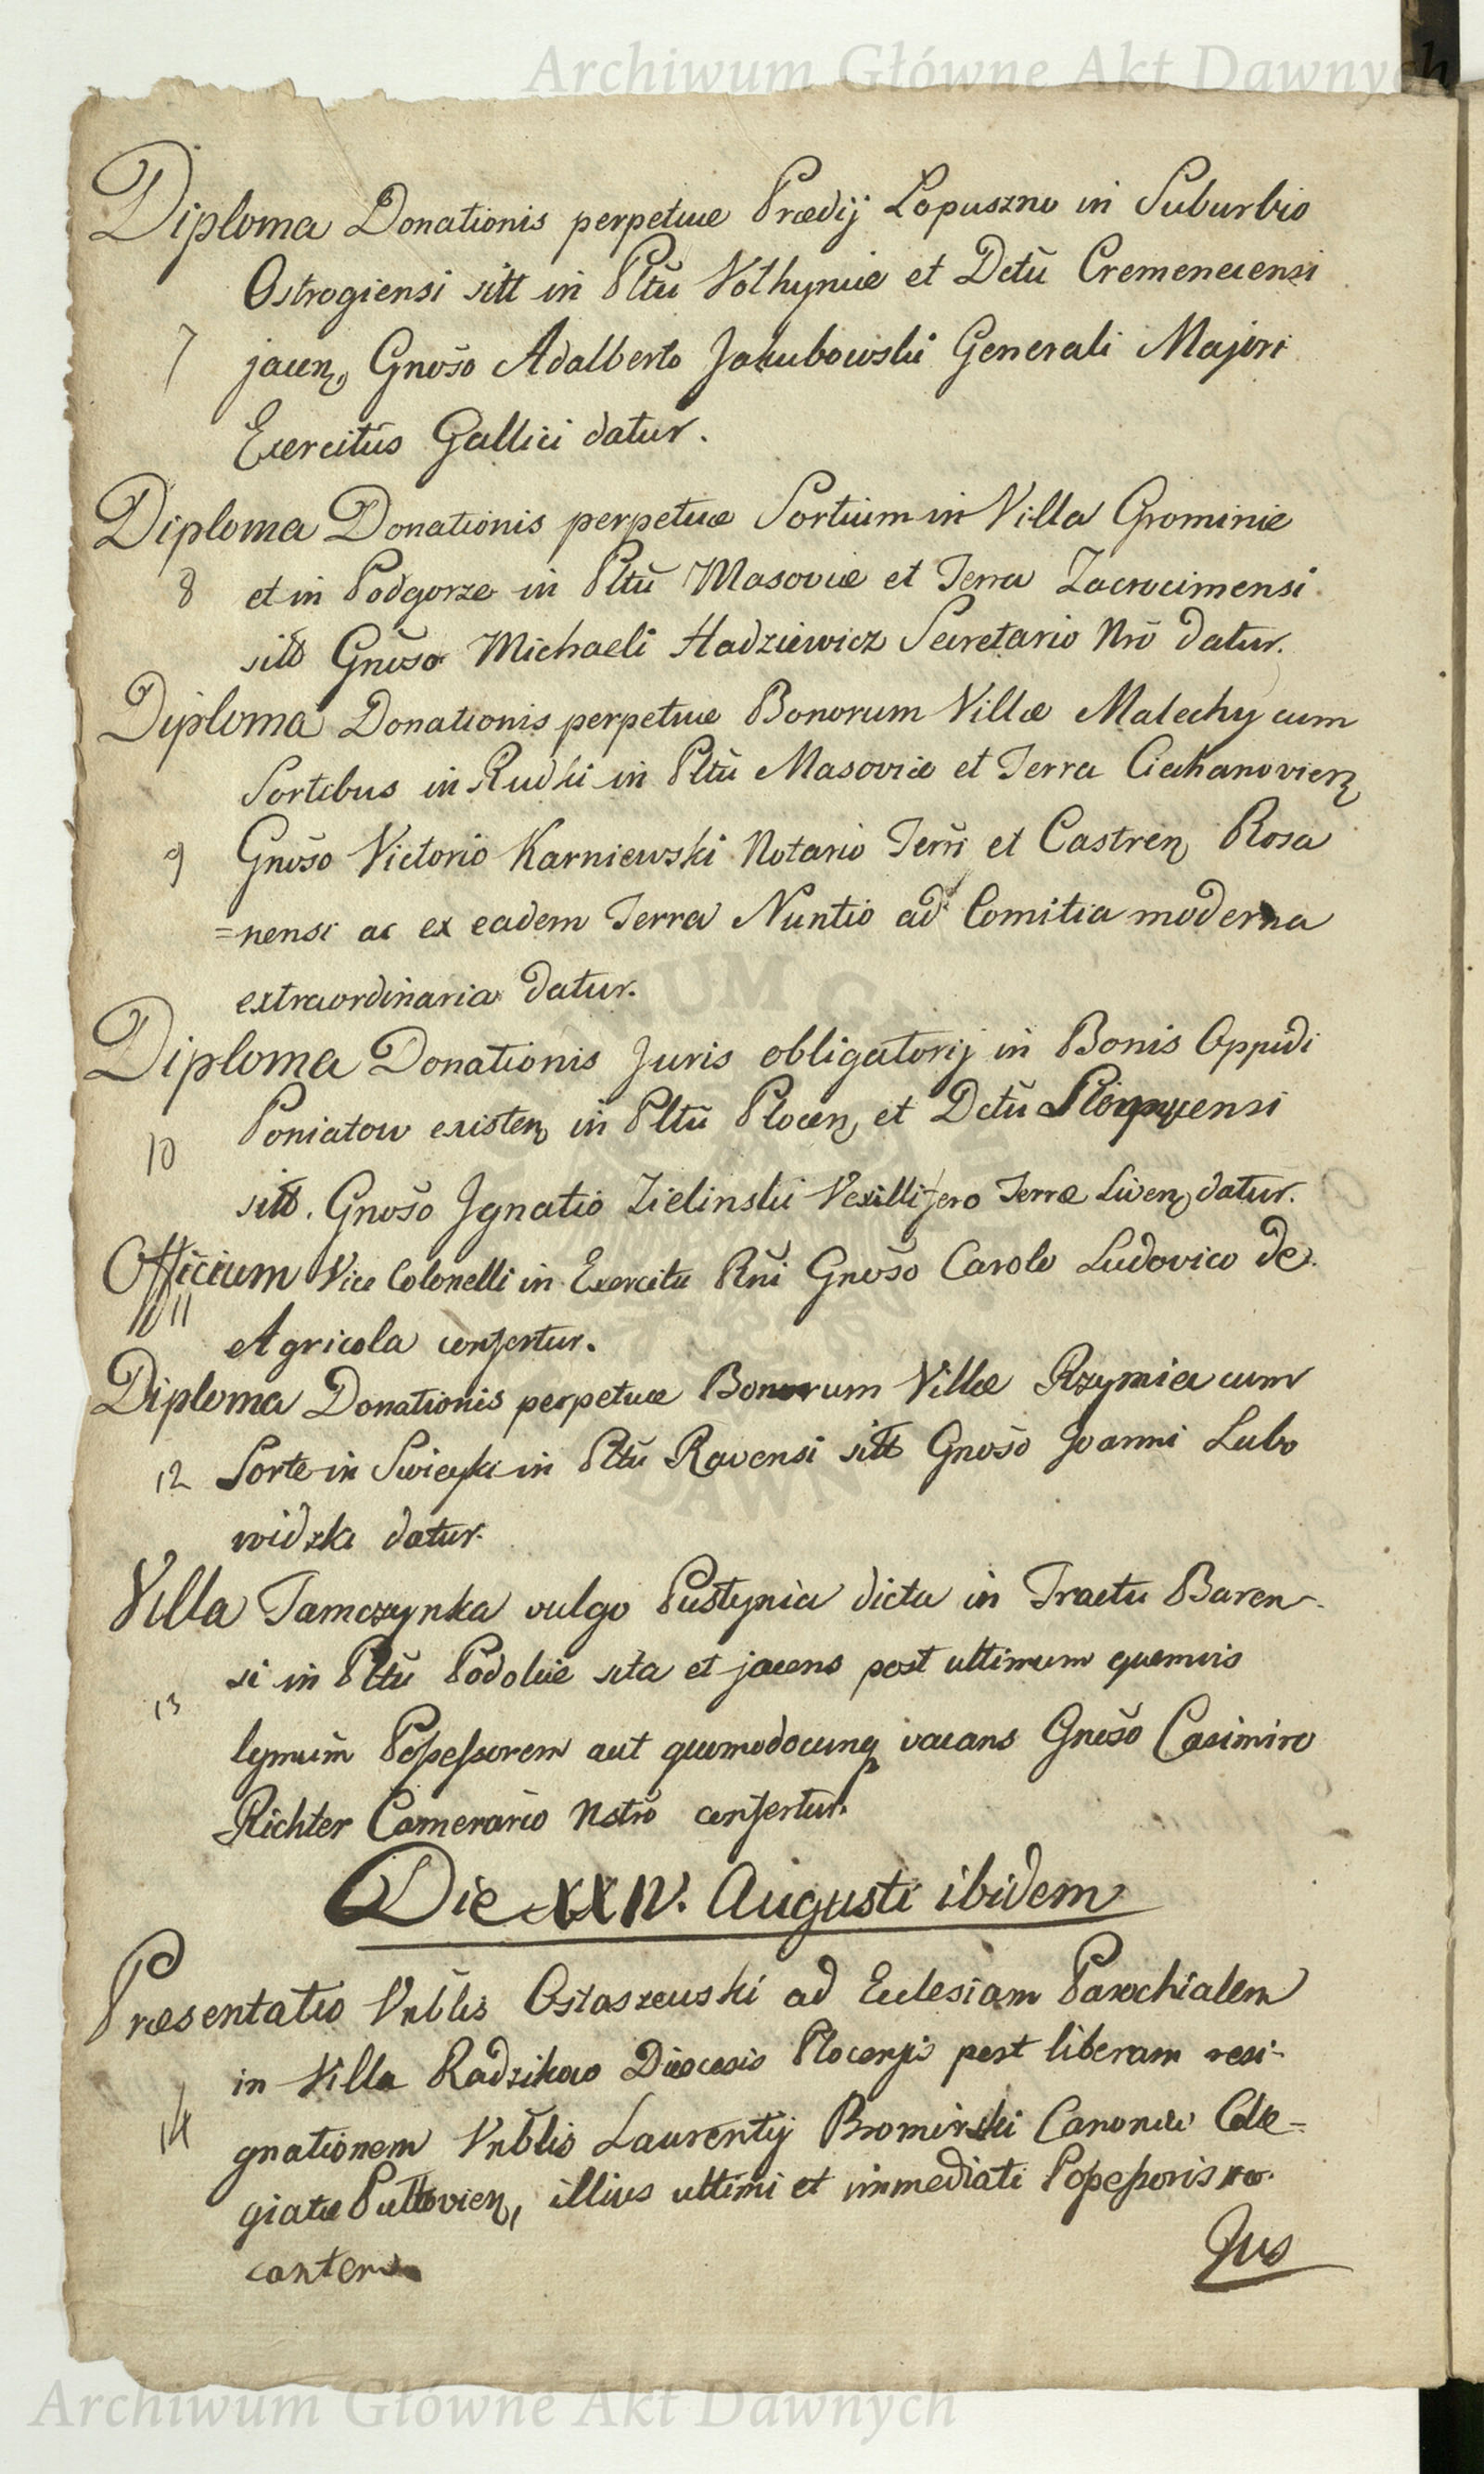 Archiwum Główne Akt Dawnych
Diploma Donationis perpetuæ Prædij Lopuszno in Suburbio
Ostrogiensi sitt in Pltũ Volhyniæ et Dctũ Cremenecensi
7 jacen, Gnõso Adalberto Jakubowski Generali Majori
Exercitûs Gallici datur.
Diploma Donationis perpetuæ Sortium in Villa Grominie
8 et in Podgorze in Pltũ Masoviæ et Terra Zacrocimensi
sitt Gnõso Michaeli Hadziewicz Secretario Nrõ datur.
Diploma Donationis perpetuæ Bonorum Villæ Malechy cum
Sortibus in Rudki in Pltũ Masoviæ et Terra Ciechanovien
9 Gnõso Victorio Karniewski Notario Terri et Castren Rosa
=nensi ac ex eadem Terra Nuntio ad Comitia moderna
extraordinaria datur.
Diploma Donationis Juris obligatorij in Bonis Oppidi
10 Poniatow existen in Pltũ Plocen, et Dctũ
sitt. Gnõso Ignatio Zielinski Vexillifero Terræ Liven, datur.
Officium Vice Colonelli in Exercitu Rni Gnõso Carolo Ludovico de
11 Agricola confertur.
Diploma Donationis perpetuæ Bonorum Villæ Rzymiec cum
12 Sorte in in Pltũ Ravensi sitt Gnõso Joanni Lubo
widzki datur.
Villa Tamczynka vulgo Pustynia dicta in Tractu Baren-
si in Pltũ Podoliæ sita et jacens post ultimum quemvis
13
lgmũm Possessorem aut quomodocunq vacans Gnõso Casimiro
Richter Camerario Nstrõ confertur.
Die XXIV. Augusti ibidem
Præsentatio Vnblis Ostaszewski ad Ecclesiam Parochialem
in Villa Radzikowo Diœcesis Plocensis post liberam resi-
14 gnationem Vnblis Laurentij Bromirski Canonici Colle=
giatæ Pultovien, illius ultimi et immediati Possessoris
Jus
Archiwum Główne Akt Dawnych